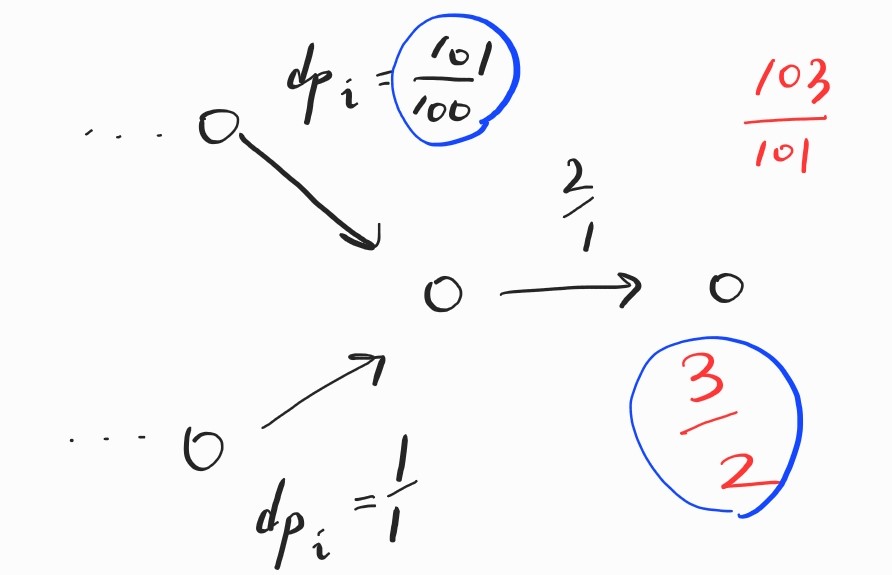 . . . O
dp_i = 101/100
103/101
2/1
O → O
3/2
. . . O
dp_i = 1/1